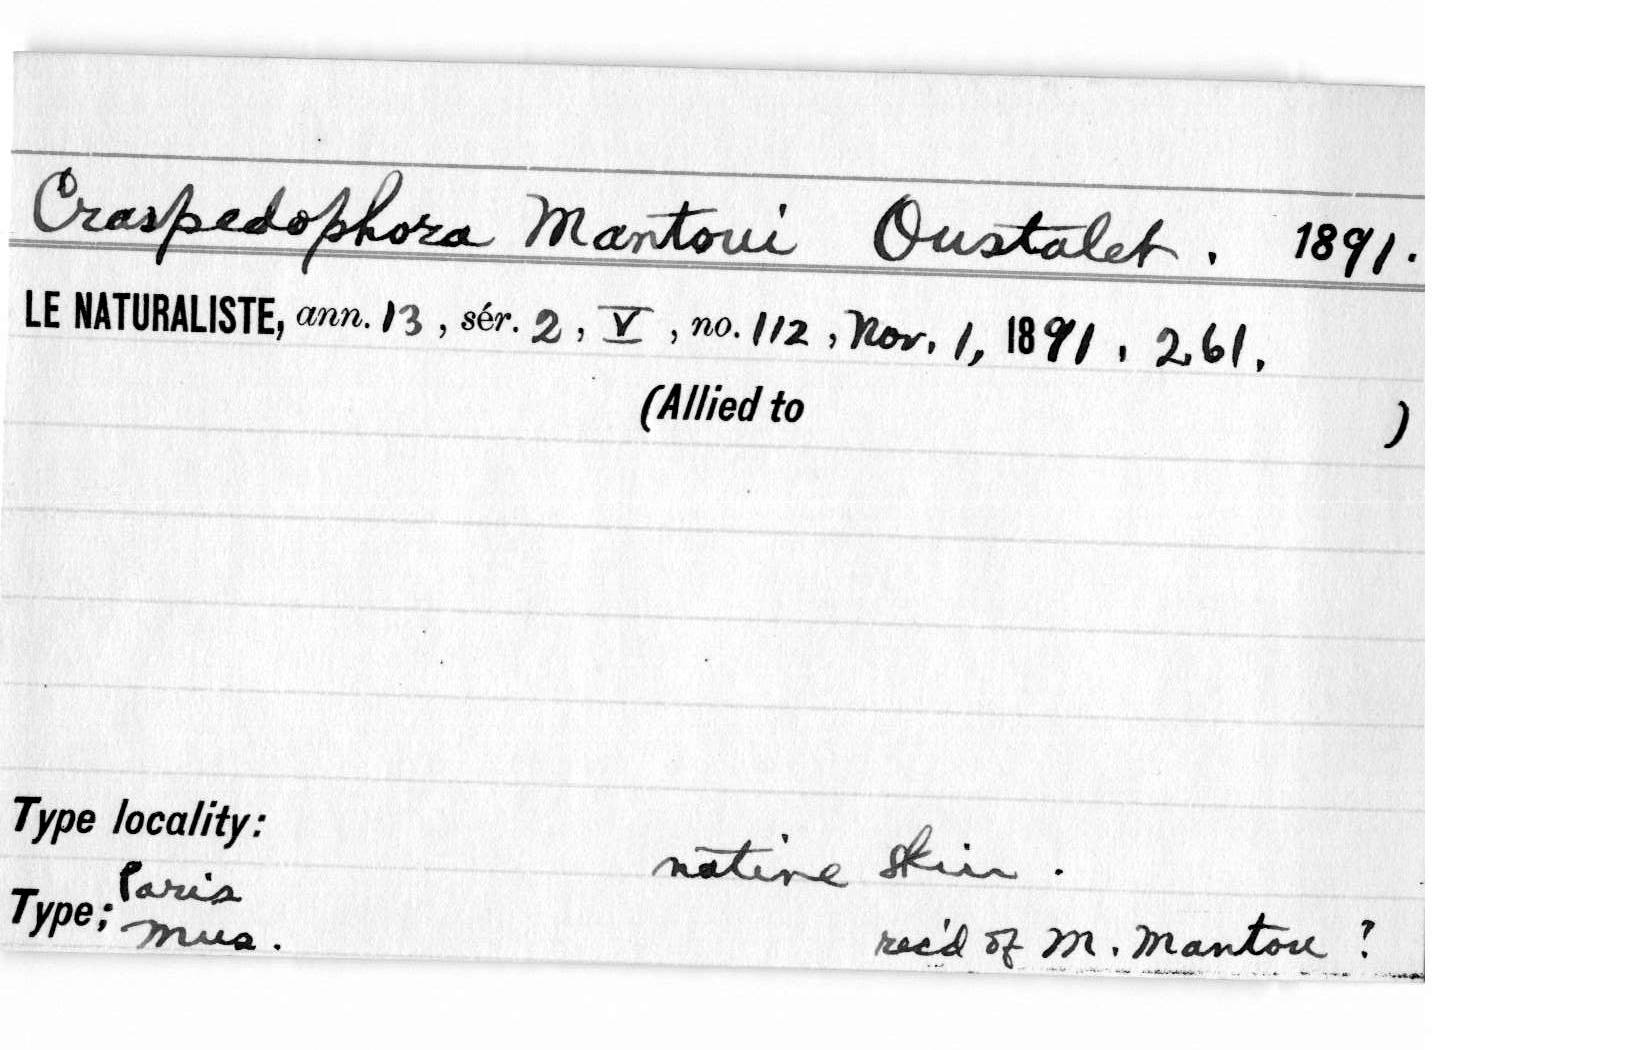 Craspedophora Mantoui Oustalet. 1891.
LE NATURALISTE, ann. 13, sér. 2, V, no. 112, Nov. 1, 1891, 261.
(Allied to )
Type locality:
native skin.
Type; Paris Mus.
rec'd of M. Mantou?